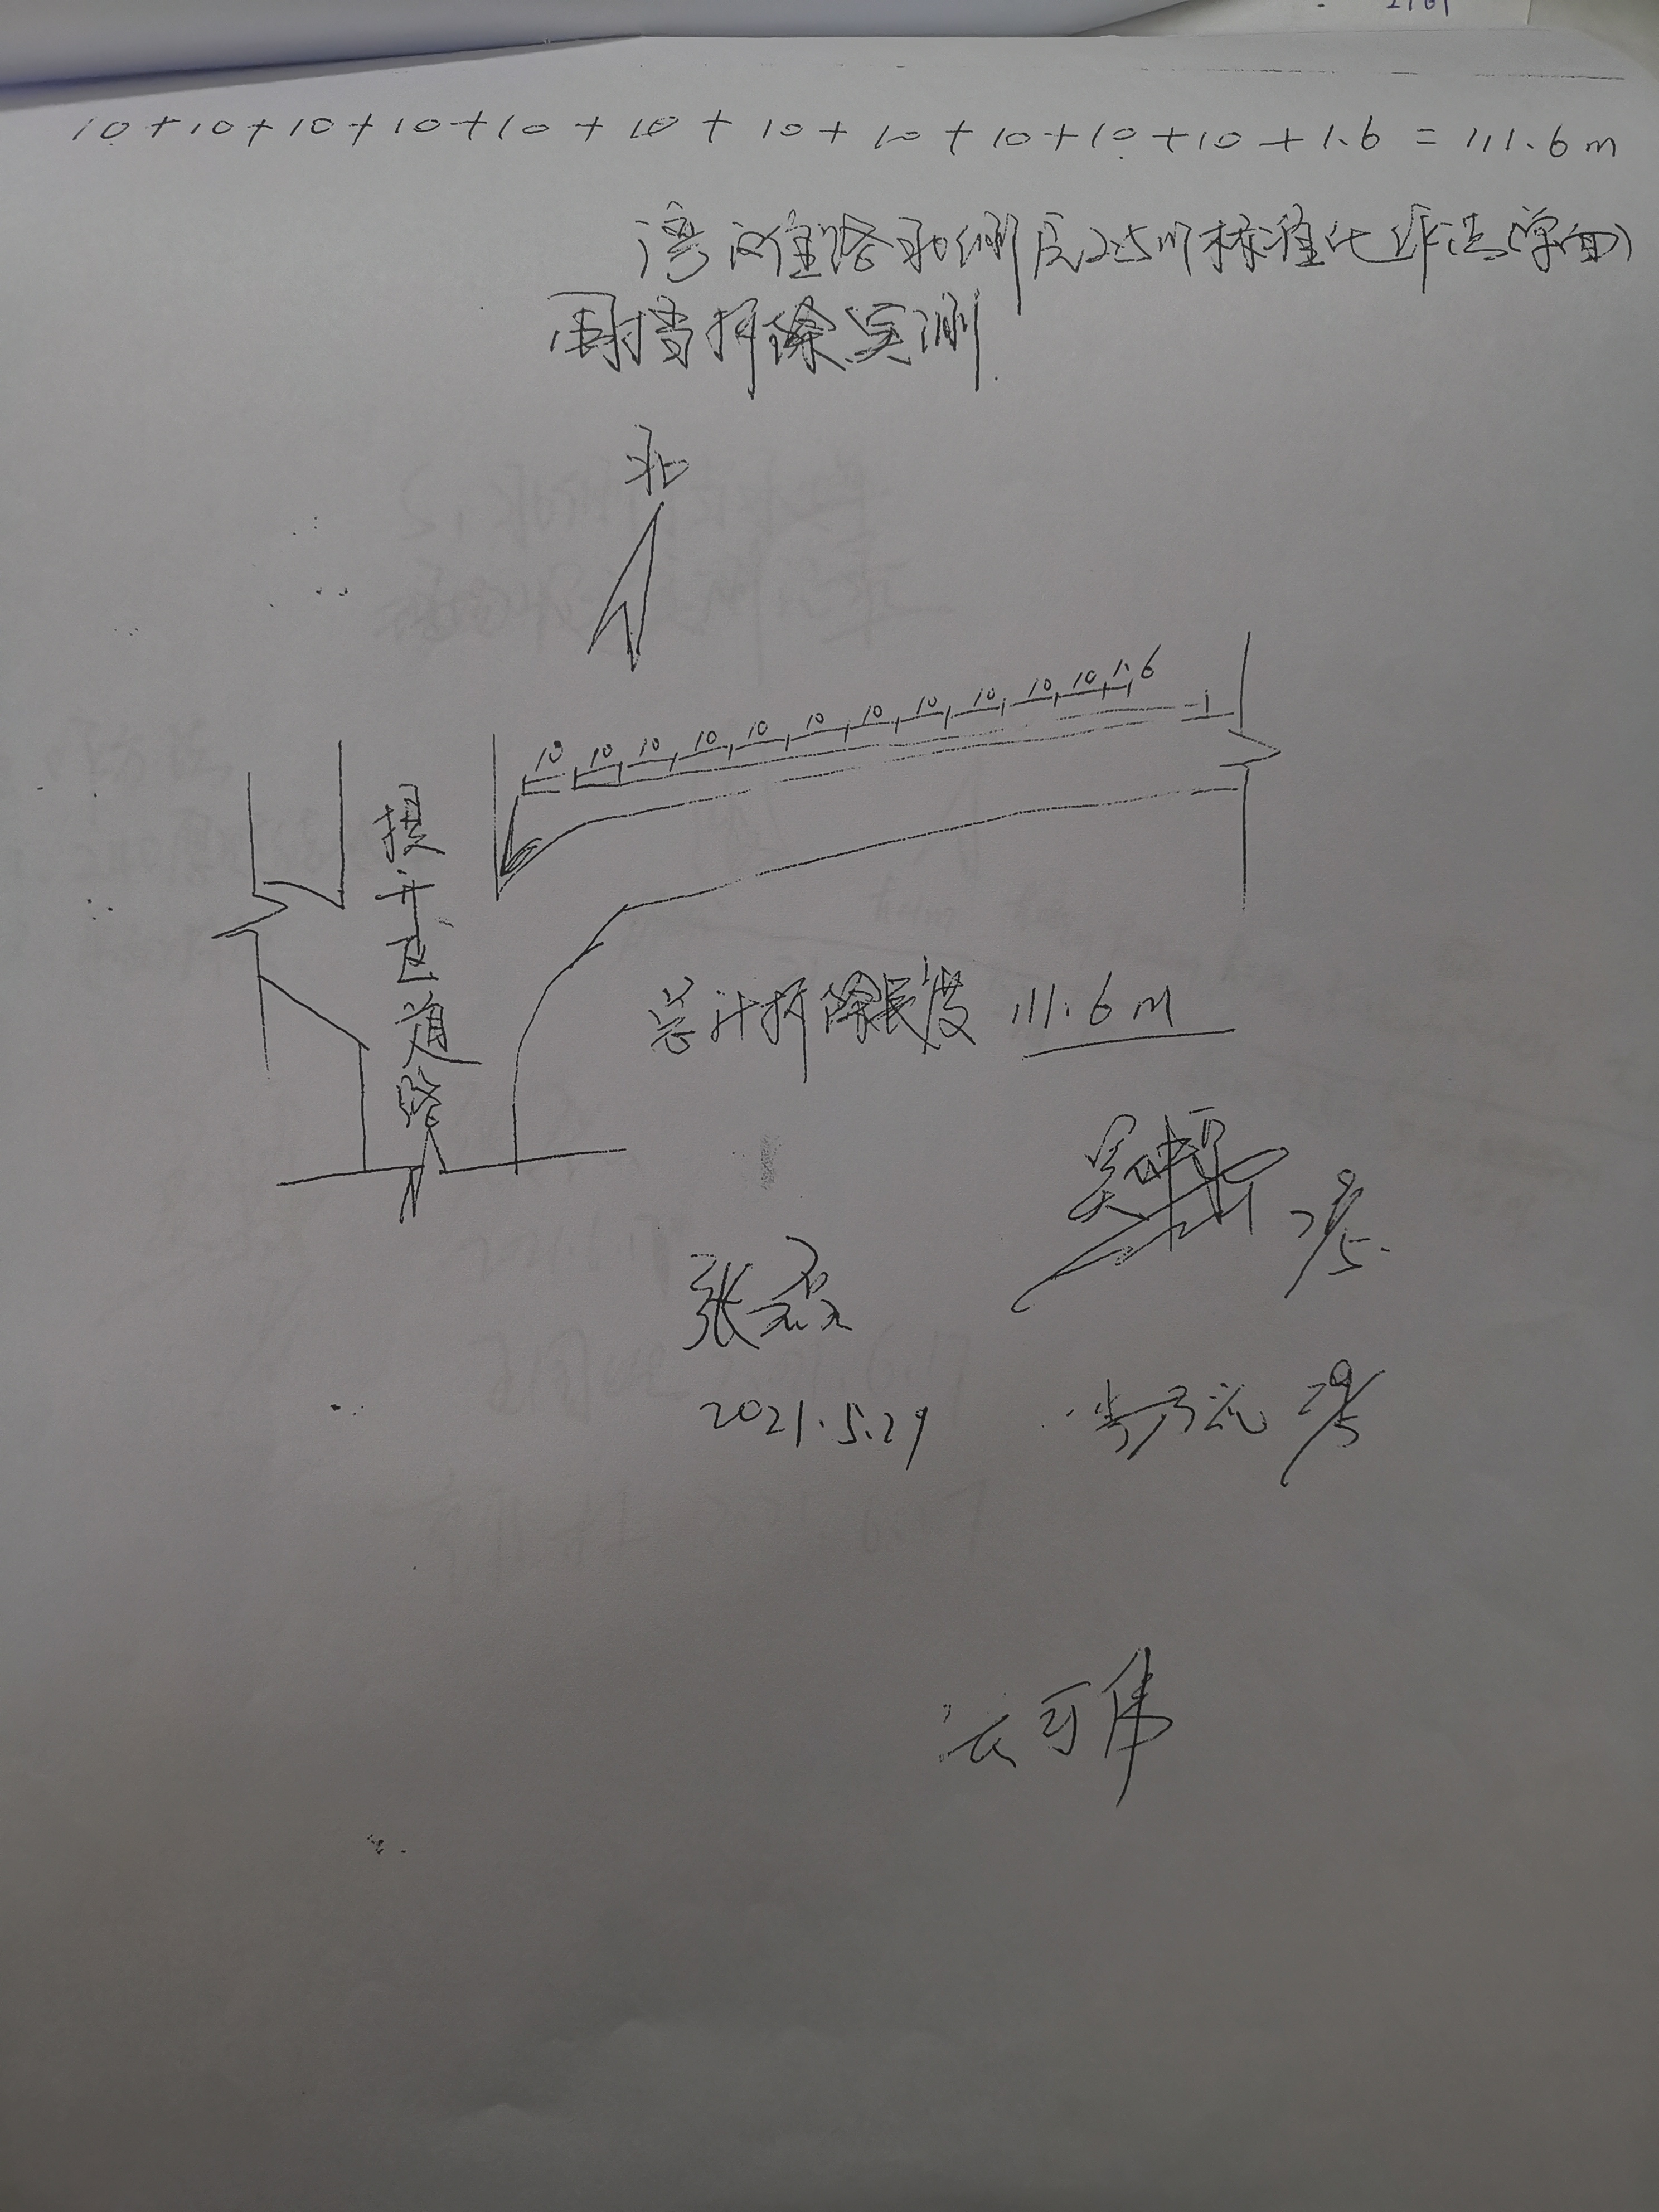 10+10+10+10+10+10+10+10+10+10+10+1.6=111.6m
湾滩路北侧2.5m标准化作法(单面)
围挡拆除实测
北
10 10 10 10 10 10 10 10 10 10 10 1.6
提升区道路
总计拆除长度 111.6m
29/5
张
2021.5.29
29/5